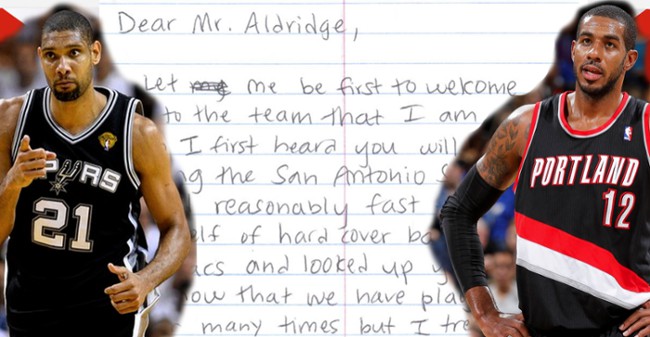 Dear Mr. Aldridge,
Let me be first to welcome
to the team that I am
I first heard you will
the San Antonio
reasonably fast
of hard cover
and looked up
that we have
many times but I
SPURS
21
PORTLAND
12